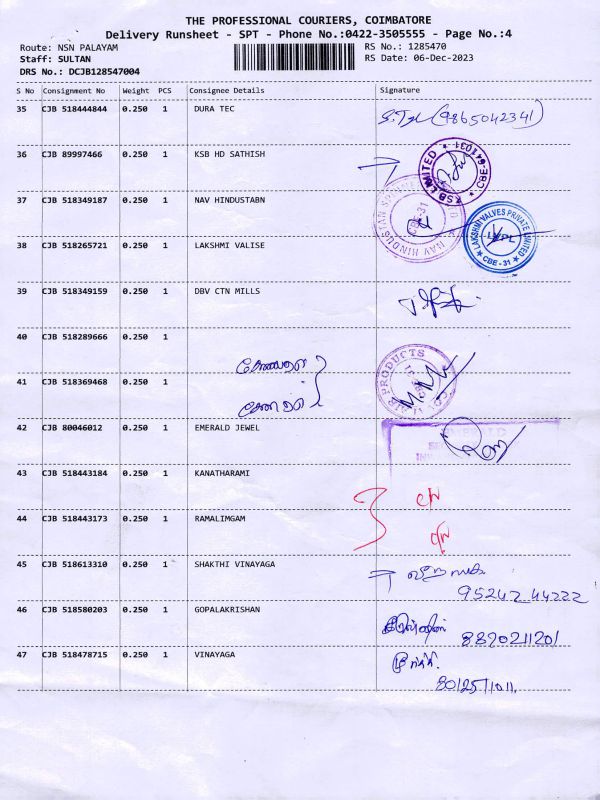 THE PROFESSIONAL COURIERS, COIMBATORE
Delivery Runsheet - SPT - Phone No.:0422-3505555 - Page No.:4
Route: NSN PALAYAM RS No.: 1285470
Staff: SULTAN RS Date: 06-Dec-2023
DRS No.: DCJB128547004
S No Consignment No Weight PCS Consignee Details Signature
35 CJB 518444844 0.250 1 DURA TEC (9865042341)
36 CJB 89997466 0.250 1 KSB HD SATHISH
KSB LIMITED ★ CBE-641031 ★
37 CJB 518349187 0.250 1 NAV HINDUSTABN
NAV HINDUSTAN CBE-31
38 CJB 518265721 0.250 1 LAKSHMI VALISE
LAKSHMI VALVES PRIVATE LIMITED LVPL ★ CBE - 31 ★
39 CJB 518349159 0.250 1 DBV CTN MILLS
40 CJB 518289666 0.250 1
AIR PRODUCTS
41 CJB 518369468 0.250 1
42 CJB 80046012 0.250 1 EMERALD JEWEL
43 CJB 518443184 0.250 1 KANATHARAMI
44 CJB 518443173 0.250 1 RAMALIMGAM
45 CJB 518613310 0.250 1 SHAKTHI VINAYAGA
95242 44222
46 CJB 518580203 0.250 1 GOPALAKRISHAN 8870211201
47 CJB 518478715 0.250 1 VINAYAGA
8012571011.